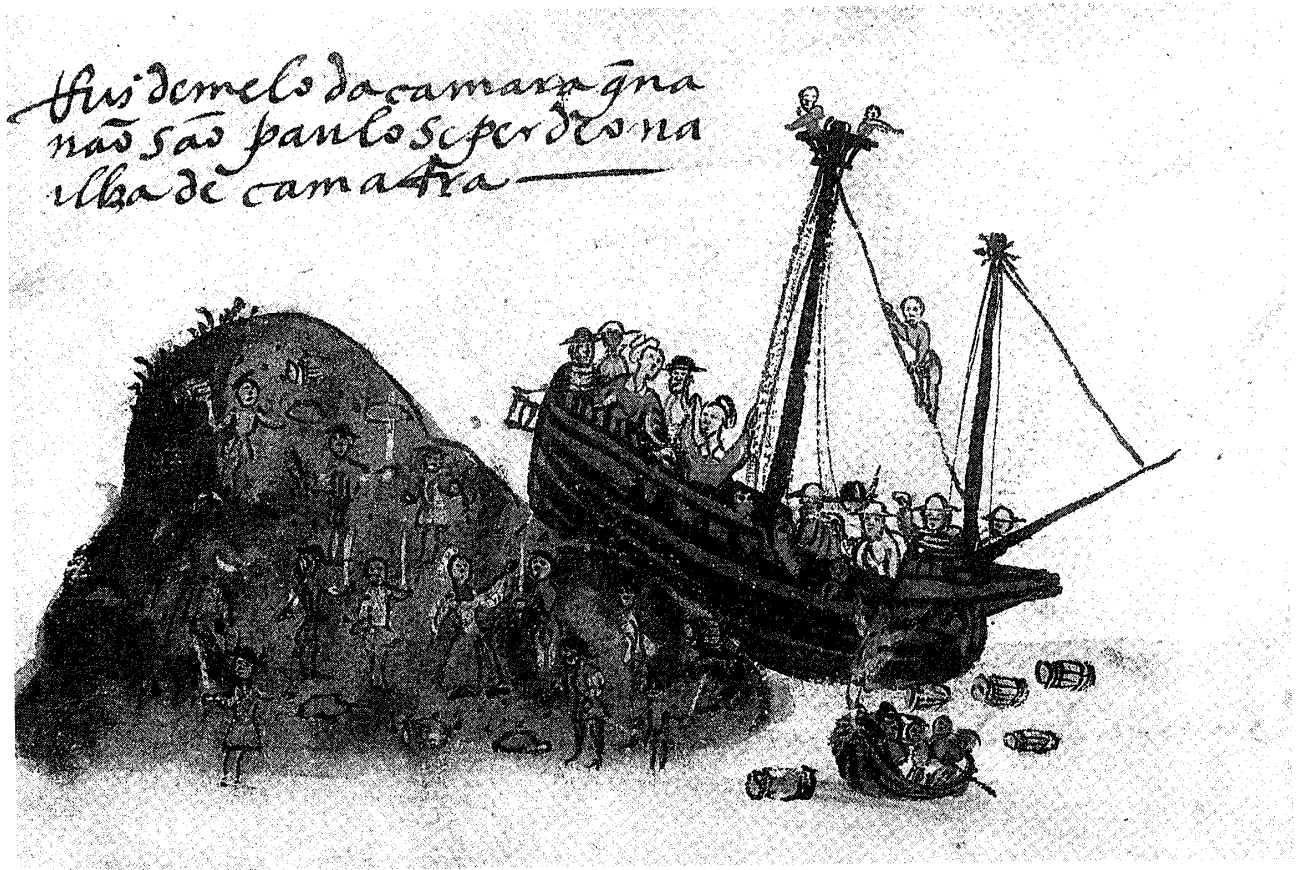 Rui de melo da camara q̃ na
não são paulo se perdeo na
ilha de camatra